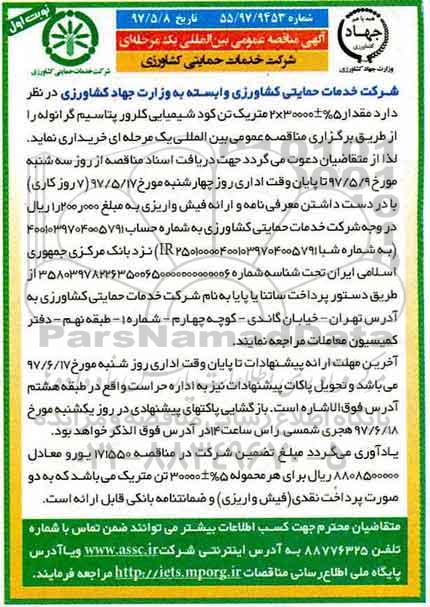 نوبت اول
شماره ۵۵/۹۷/۹۴۵۳ تاریخ ۹۷/۵/۸
آگهی مناقصه عمومی بین‌المللی یک مرحله‌ای
شرکت خدمات حمایتی کشاورزی
شرکت خدمات حمایتی کشاورزی
جهاد
کشاورزی
وزارت جهاد کشاورزی
شرکت خدمات حمایتی کشاورزی وابسته به وزارت جهاد کشاورزی در نظر
دارد مقدار ۵%±۲×۳۰۰۰۰ متریک تن کود شیمیایی کلرور پتاسیم گرانوله را
از طریق برگزاری مناقصه عمومی بین المللی یک مرحله ای خریداری نماید.
لذا از متقاضیان دعوت می گردد جهت دریافت اسناد مناقصه از روز سه شنبه
مورخ ۹۷/۵/۹ تا پایان وقت اداری روز چهارشنبه مورخ ۹۷/۵/۱۷ (۷ روز کاری)
با در دست داشتن معرفی نامه و ارائه فیش واریزی به مبلغ ۱٫۲۰۰٫۰۰۰ ریال
در وجه شرکت خدمات حمایتی کشاورزی به شماره حساب ۴۰۰۱۰۳۹۷۰۴۰۰۵۷۹۱
(به شماره شبا IR ۲۵۰۱۰۰۰۰۴۰۰۱۰۳۹۷۰۴۰۰۵۷۹۱) نزد بانک مرکزی جمهوری
اسلامی ایران تحت شناسه شماره از
طریق دستور پرداخت ساتنا یا پایا به نام شرکت خدمات حمایتی کشاورزی به
آدرس تهران - خیابان گاندی - کوچه چهارم - شماره ۱ - طبقه نهم - دفتر
کمیسیون معاملات مراجعه نمایند.
آخرین مهلت ارائه پیشنهادات تا پایان وقت اداری روز شنبه مورخ ۹۷/۶/۱۷
می باشد و تحویل پاکات پیشنهادات نیز به اداره حراست واقع در طبقه هشتم
آدرس فوق الاشاره است. بازگشایی پاکتهای پیشنهادی در روز یکشنبه مورخ
۹۷/۶/۱۸ هجری شمسی راس ساعت ۱۴ در آدرس فوق الذکر خواهد بود.
یادآوری می‌گردد مبلغ تضمین شرکت در مناقصه ۱۷۱۵۵۰ یورو معادل
۸۸۰۸۵۰۰۰۰۰ ریال برای هر محموله ۵%±۳۰۰۰۰ تن متریک می باشد که به دو
صورت پرداخت نقدی (فیش واریزی) و ضمانتنامه بانکی قابل ارائه است.
متقاضیان محترم جهت کسب اطلاعات بیشتر می توانند ضمن تماس با شماره
تلفن ۸۸۷۷۶۳۲۵ به آدرس اینترنتی شرکت www.assc.ir و یا آدرس
پایگاه ملی اطلاع رسانی مناقصات http://iets.mporg.ir مراجعه فرمایند.
ParsNamadData